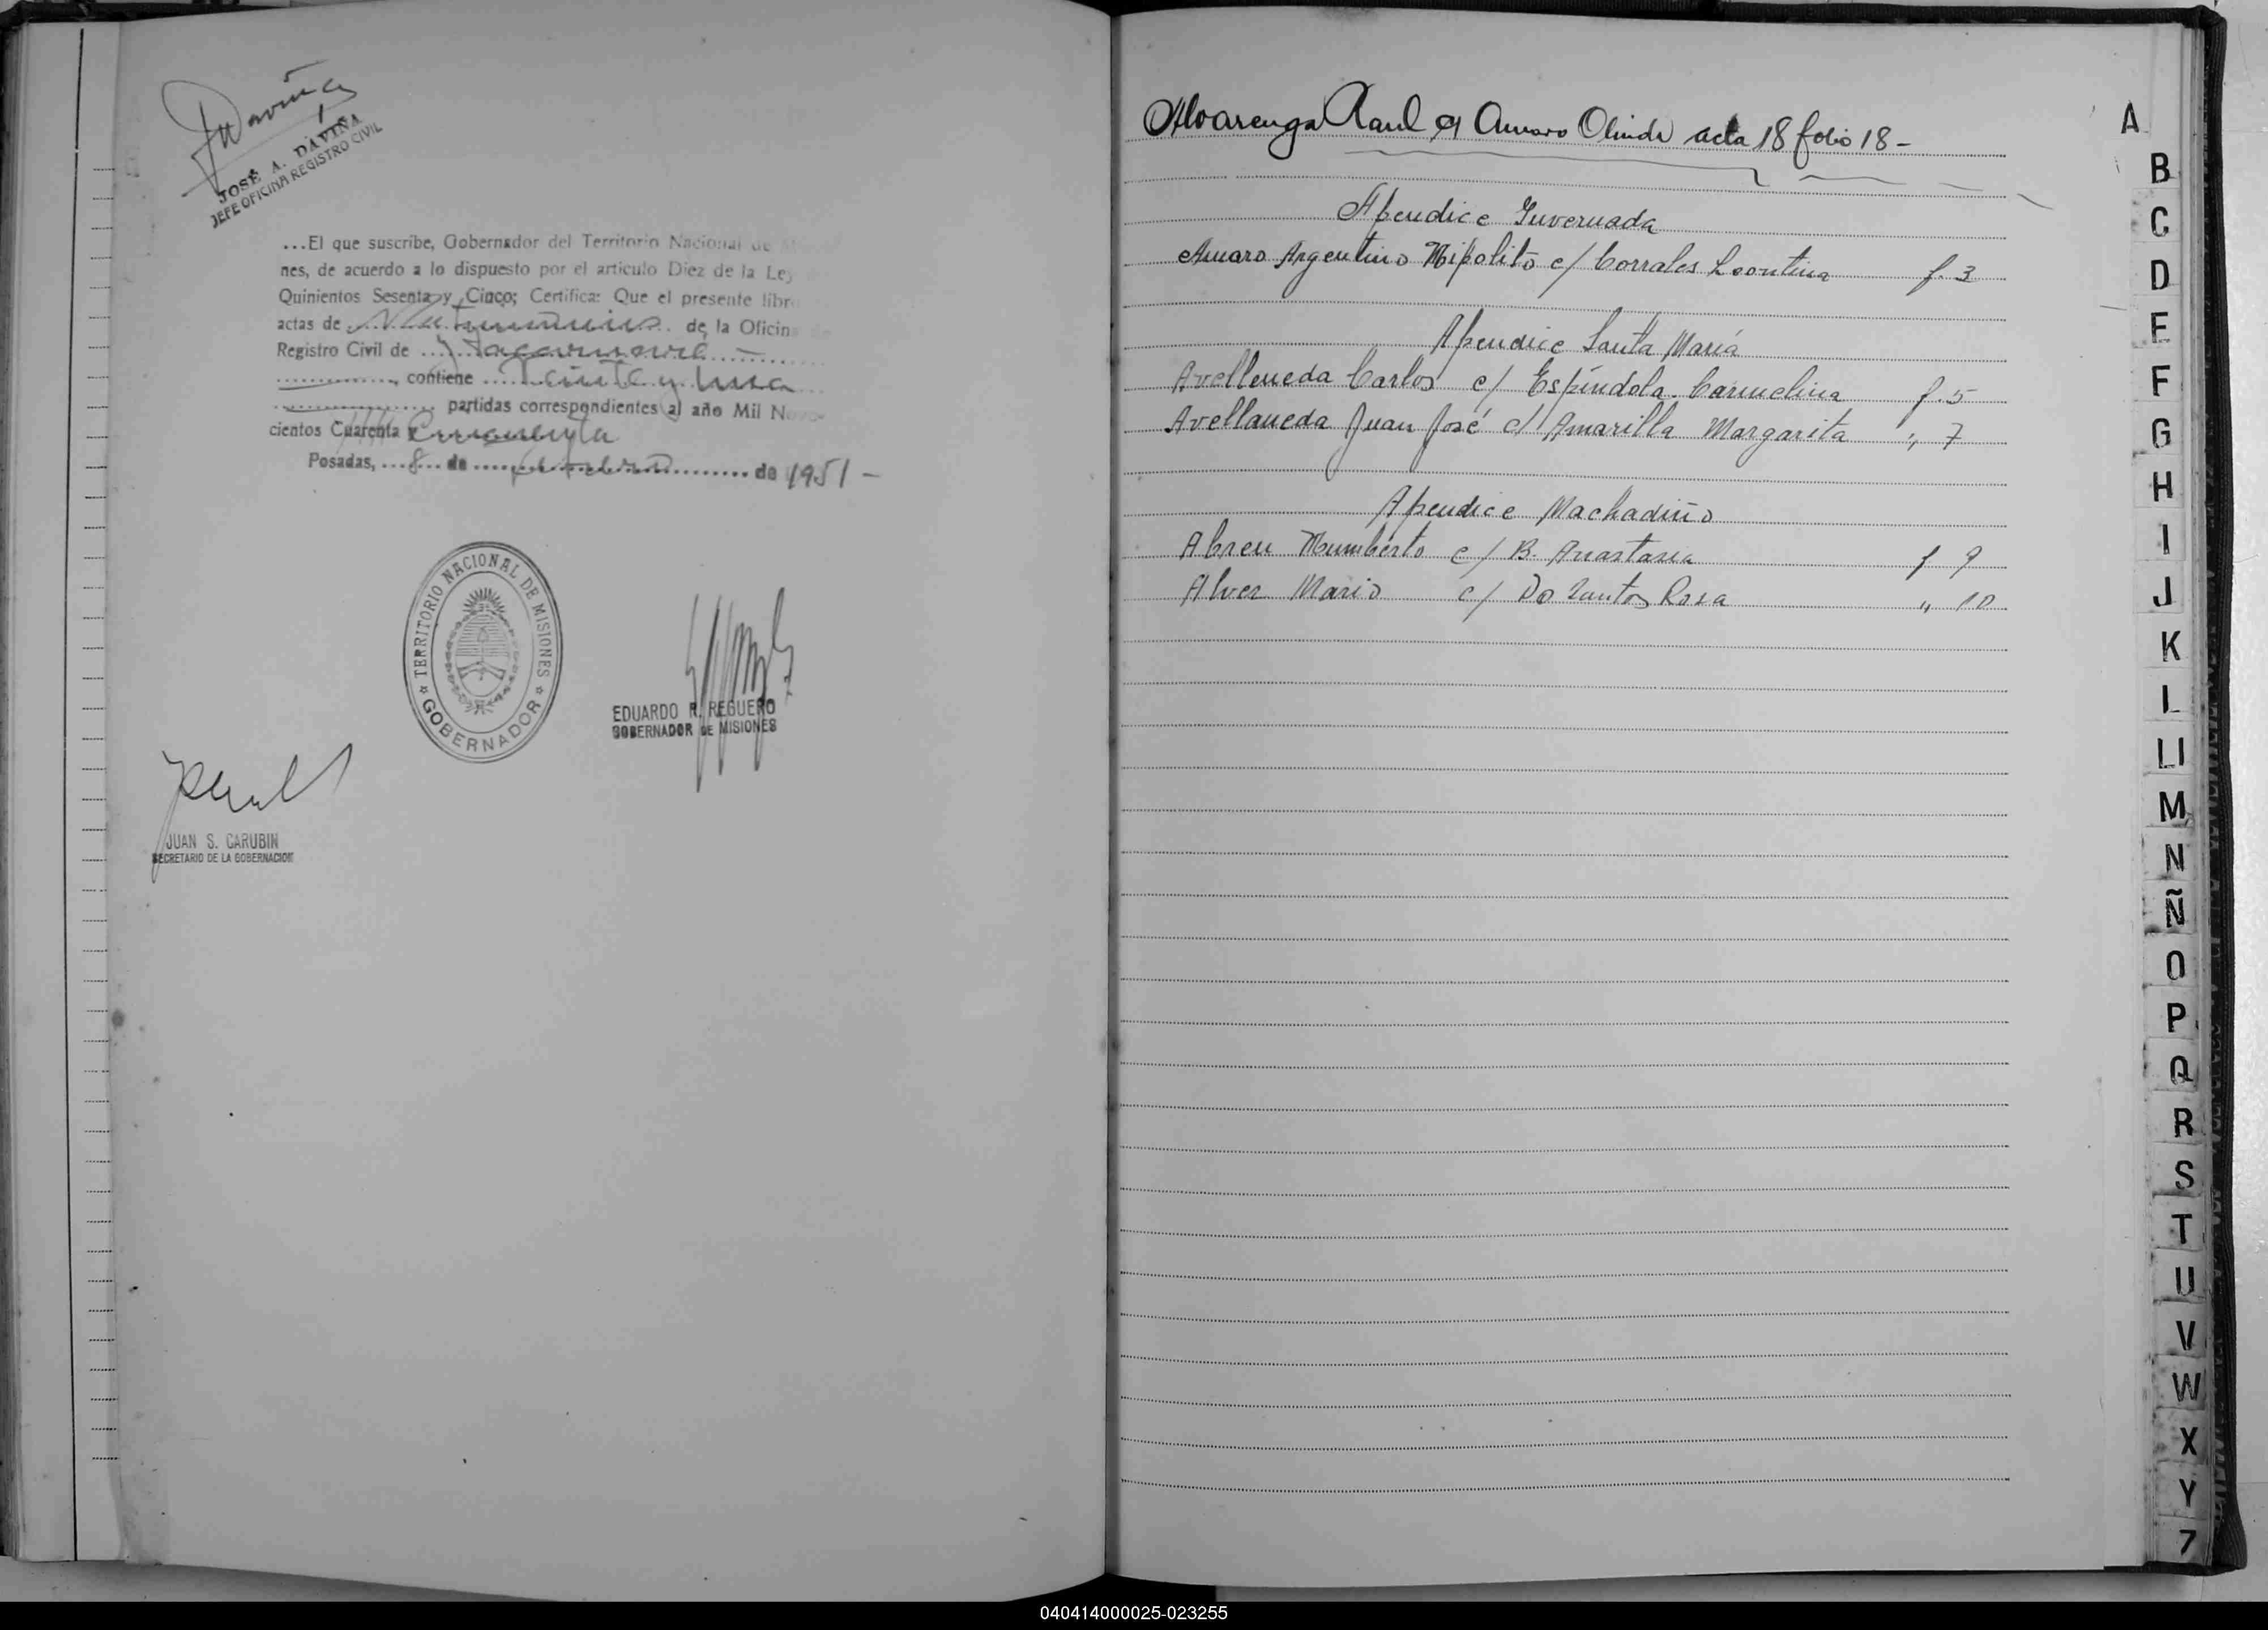 JOSÉ A. DAVIÑA
JEFE OFICINA REGISTRO CIVIL
...El que suscribe, Gobernador del Territorio Nacional de
nes, de acuerdo a lo dispuesto por el articulo Diez de la Ley
Quinientos Sesenta y Cinco; Certifica: Que el presente libro
actas de Matrimonios de la Oficina de
Registro Civil de
contiene Treinta y una
partidas correspondientes al año Mil Nove-
cientos Cuarenta y Cincuenta
Posadas, 8 de de 1951 -
TERRITORIO NACIONAL DE MISIONES
GOBERNADOR
EDUARDO R. REGUERO
GOBERNADOR DE MISIONES
JUAN S. CARUBIN
SECRETARIO DE LA GOBERNACION
Alvarenga Raul c/ Amaro Olinda acta 18 folio 18 -
Apendice Invernada
Amaro Argentino Hipolito c/ Corrales Leontina f. 3
Apendice Santa María
Avelleneda Carlos c/ Espíndola Carmelina f. 5
Avellaneda Juan José c/ Amarilla Margarita " 7
Apendice Machadiño
Abreu Humberto c/ B. Anastasia f 9
Alvez Mario c/ Do Santos Rosa " 10
A
B
C
D
E
F
G
H
I
J
K
L
Ll
M
N
Ñ
O
P
Q
R
S
T
U
V
W
X
Y
Z
040414000025-023255